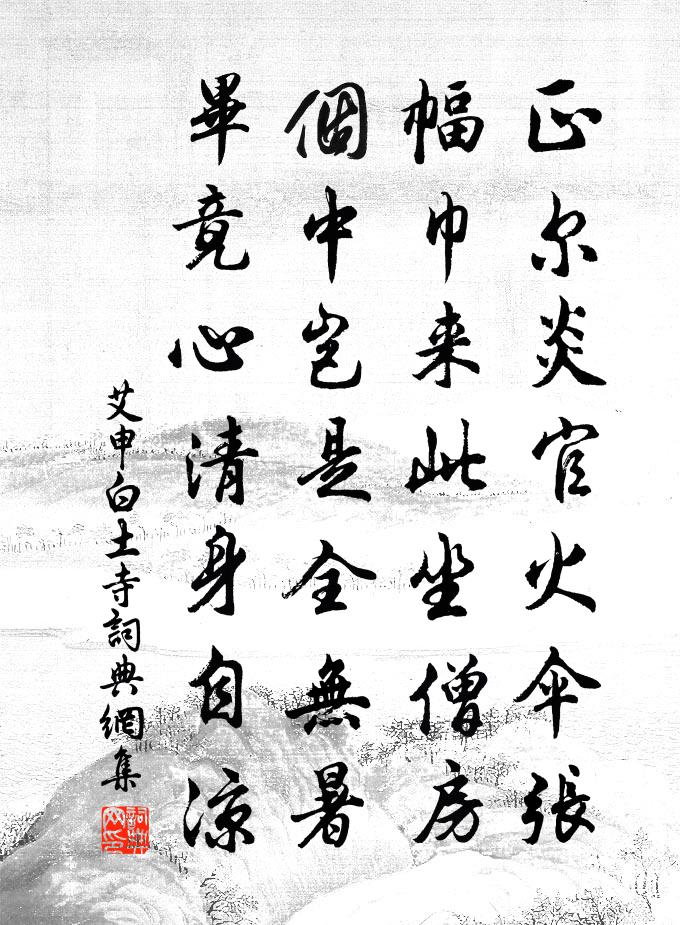 正尔炎官火伞張
幅巾来此坐僧房
個中岂是全無暑
畢竟心清身自涼
艾申白土寺詞典網集
詞典网印